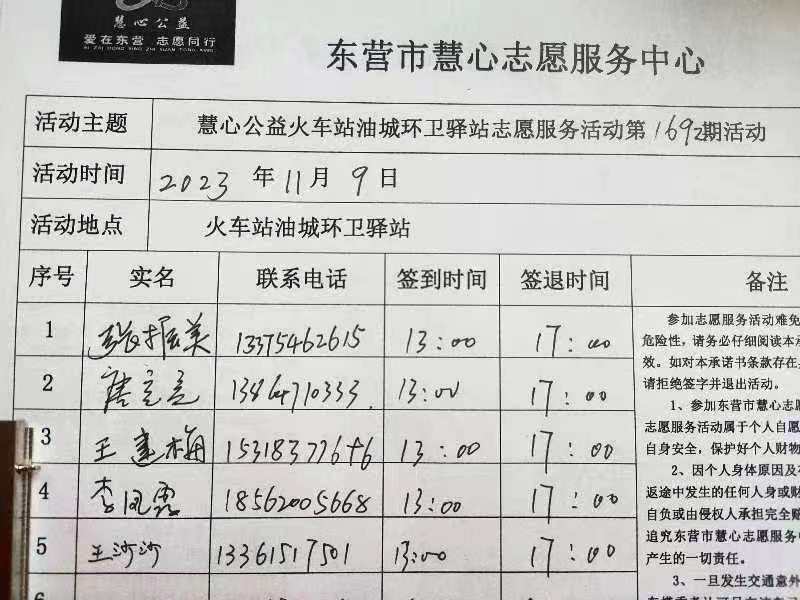 慧心公益
爱在东营 志愿同行
AI ZAI DONG YING ZHI YUAN TONG XING
东营市慧心志愿服务中心
活动主题 慧心公益火车站油城环卫驿站志愿服务活动第1692期活动
活动时间 2023 年 11 月 9 日
活动地点 火车站油城环卫驿站
序号 实名 联系电话 签到时间 签退时间 备注
1 张振美 13375462615 13:00 17:00
2 13:00 17:00
3 王建梅 13:00 17:00
4 李凤霞 18562005668 13:00 17:00
5 王沙沙 13361517501 13:00 17:00
6
参加志愿服务活动难免
危险性，请务必仔细阅读本承
效。如对本承诺书条款存在
请拒绝签字并退出活动。
1、参加东营市慧心志愿
志愿服务活动属于个人自愿
自身安全，保护好个人财物
2、因个人身体原因及
返途中发生的任何人身或财
自负或由侵权人承担完全赔
追究东营市慧心志愿服务中
产生的一切责任。
3、一旦发生交通意外